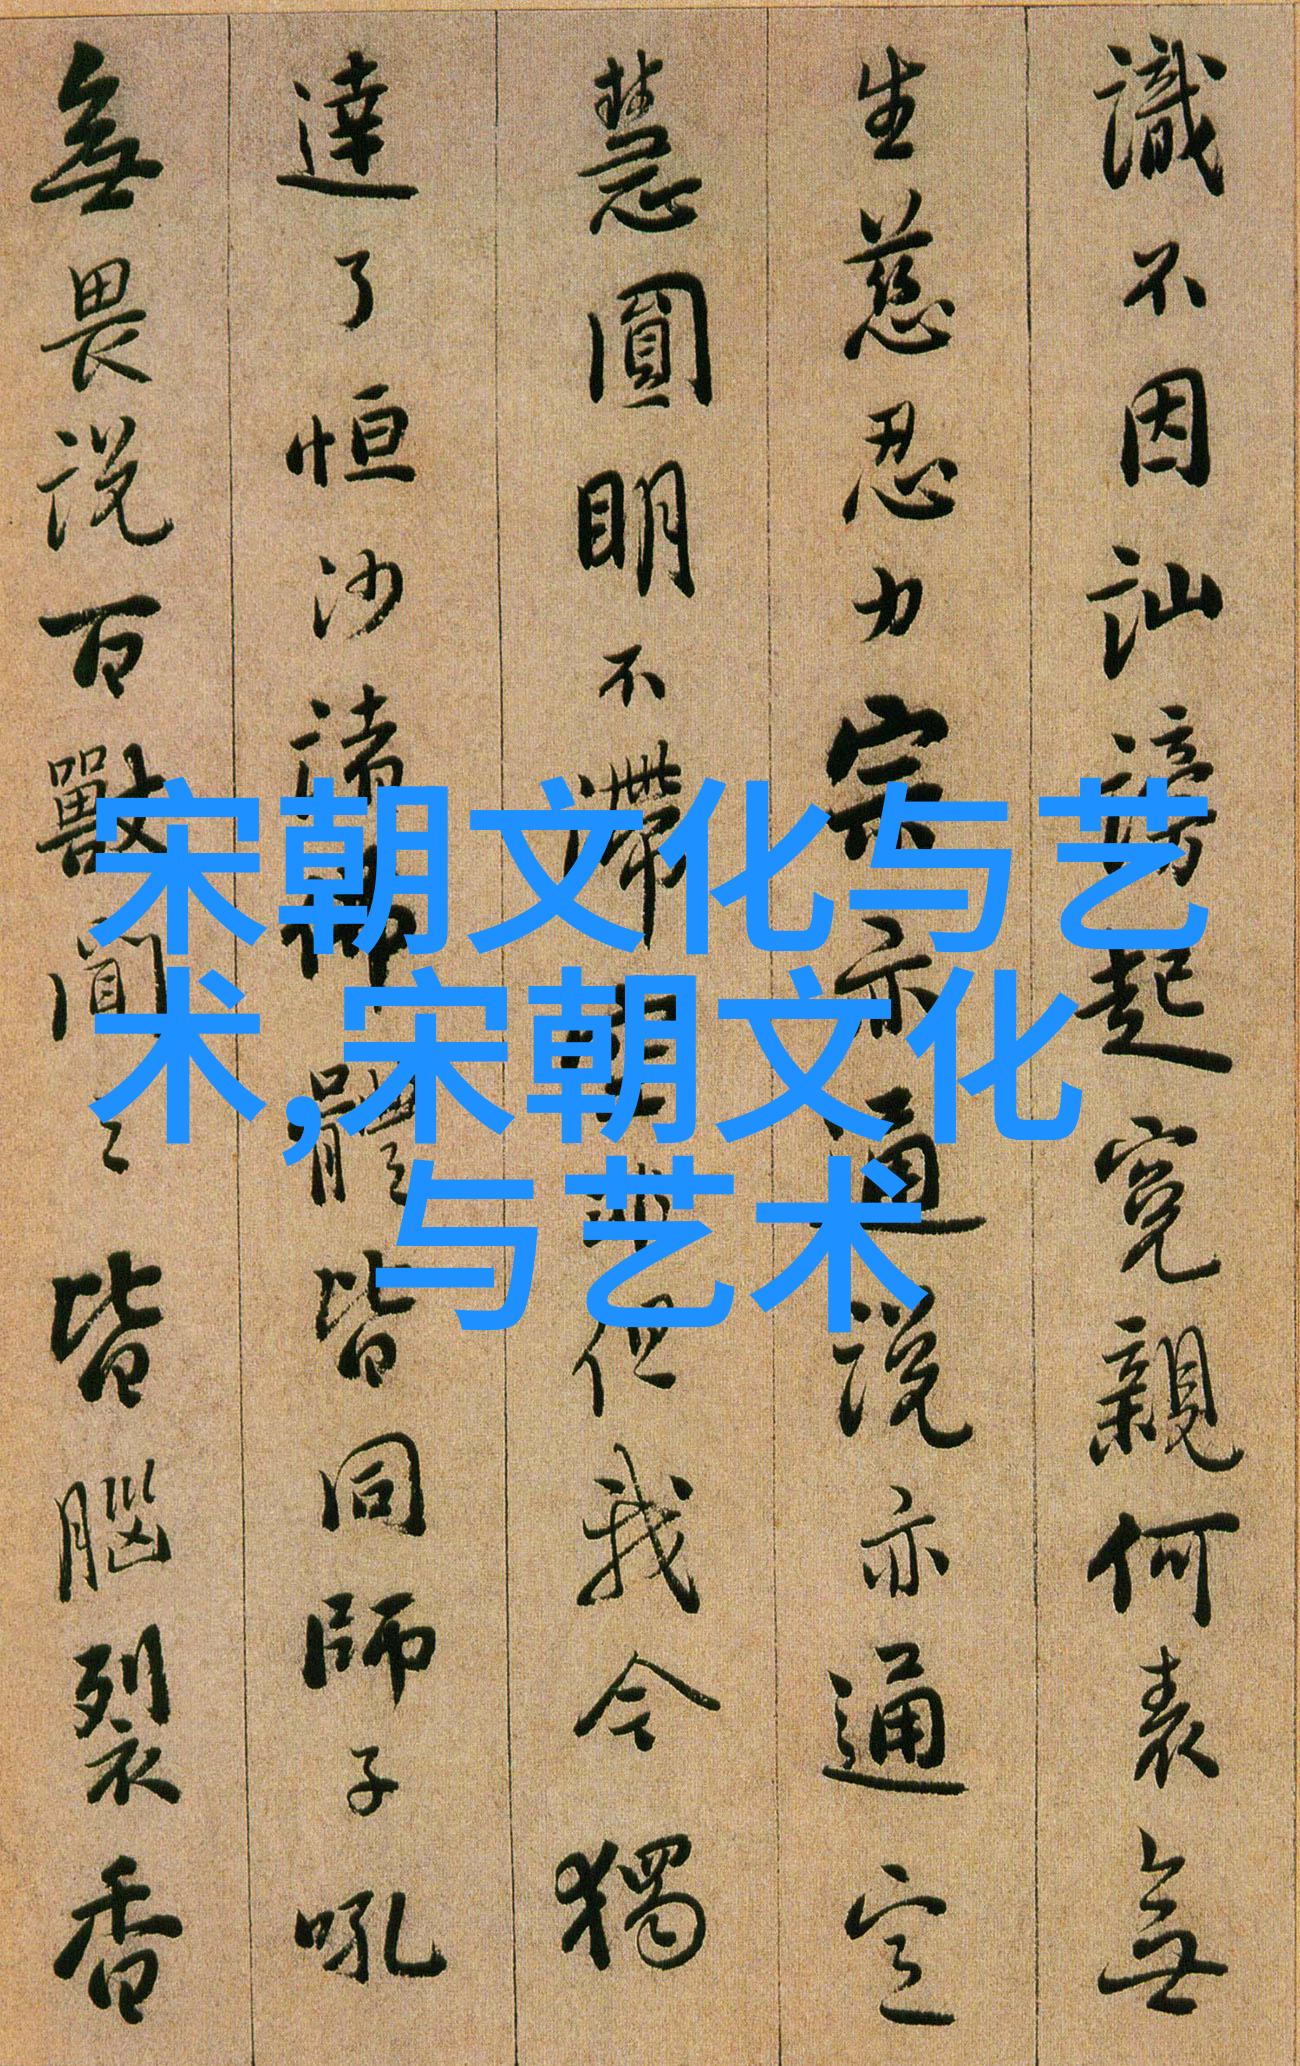 識不因訕謗起寃親何表無
生慈忍力宗亦通説亦通定
慧圓明不滯空非但我今獨
達了恒沙諸佛體皆同師子吼
無畏説百獸聞之皆腦裂香
宋朝文化与艺
术,宋朝文化
与艺术